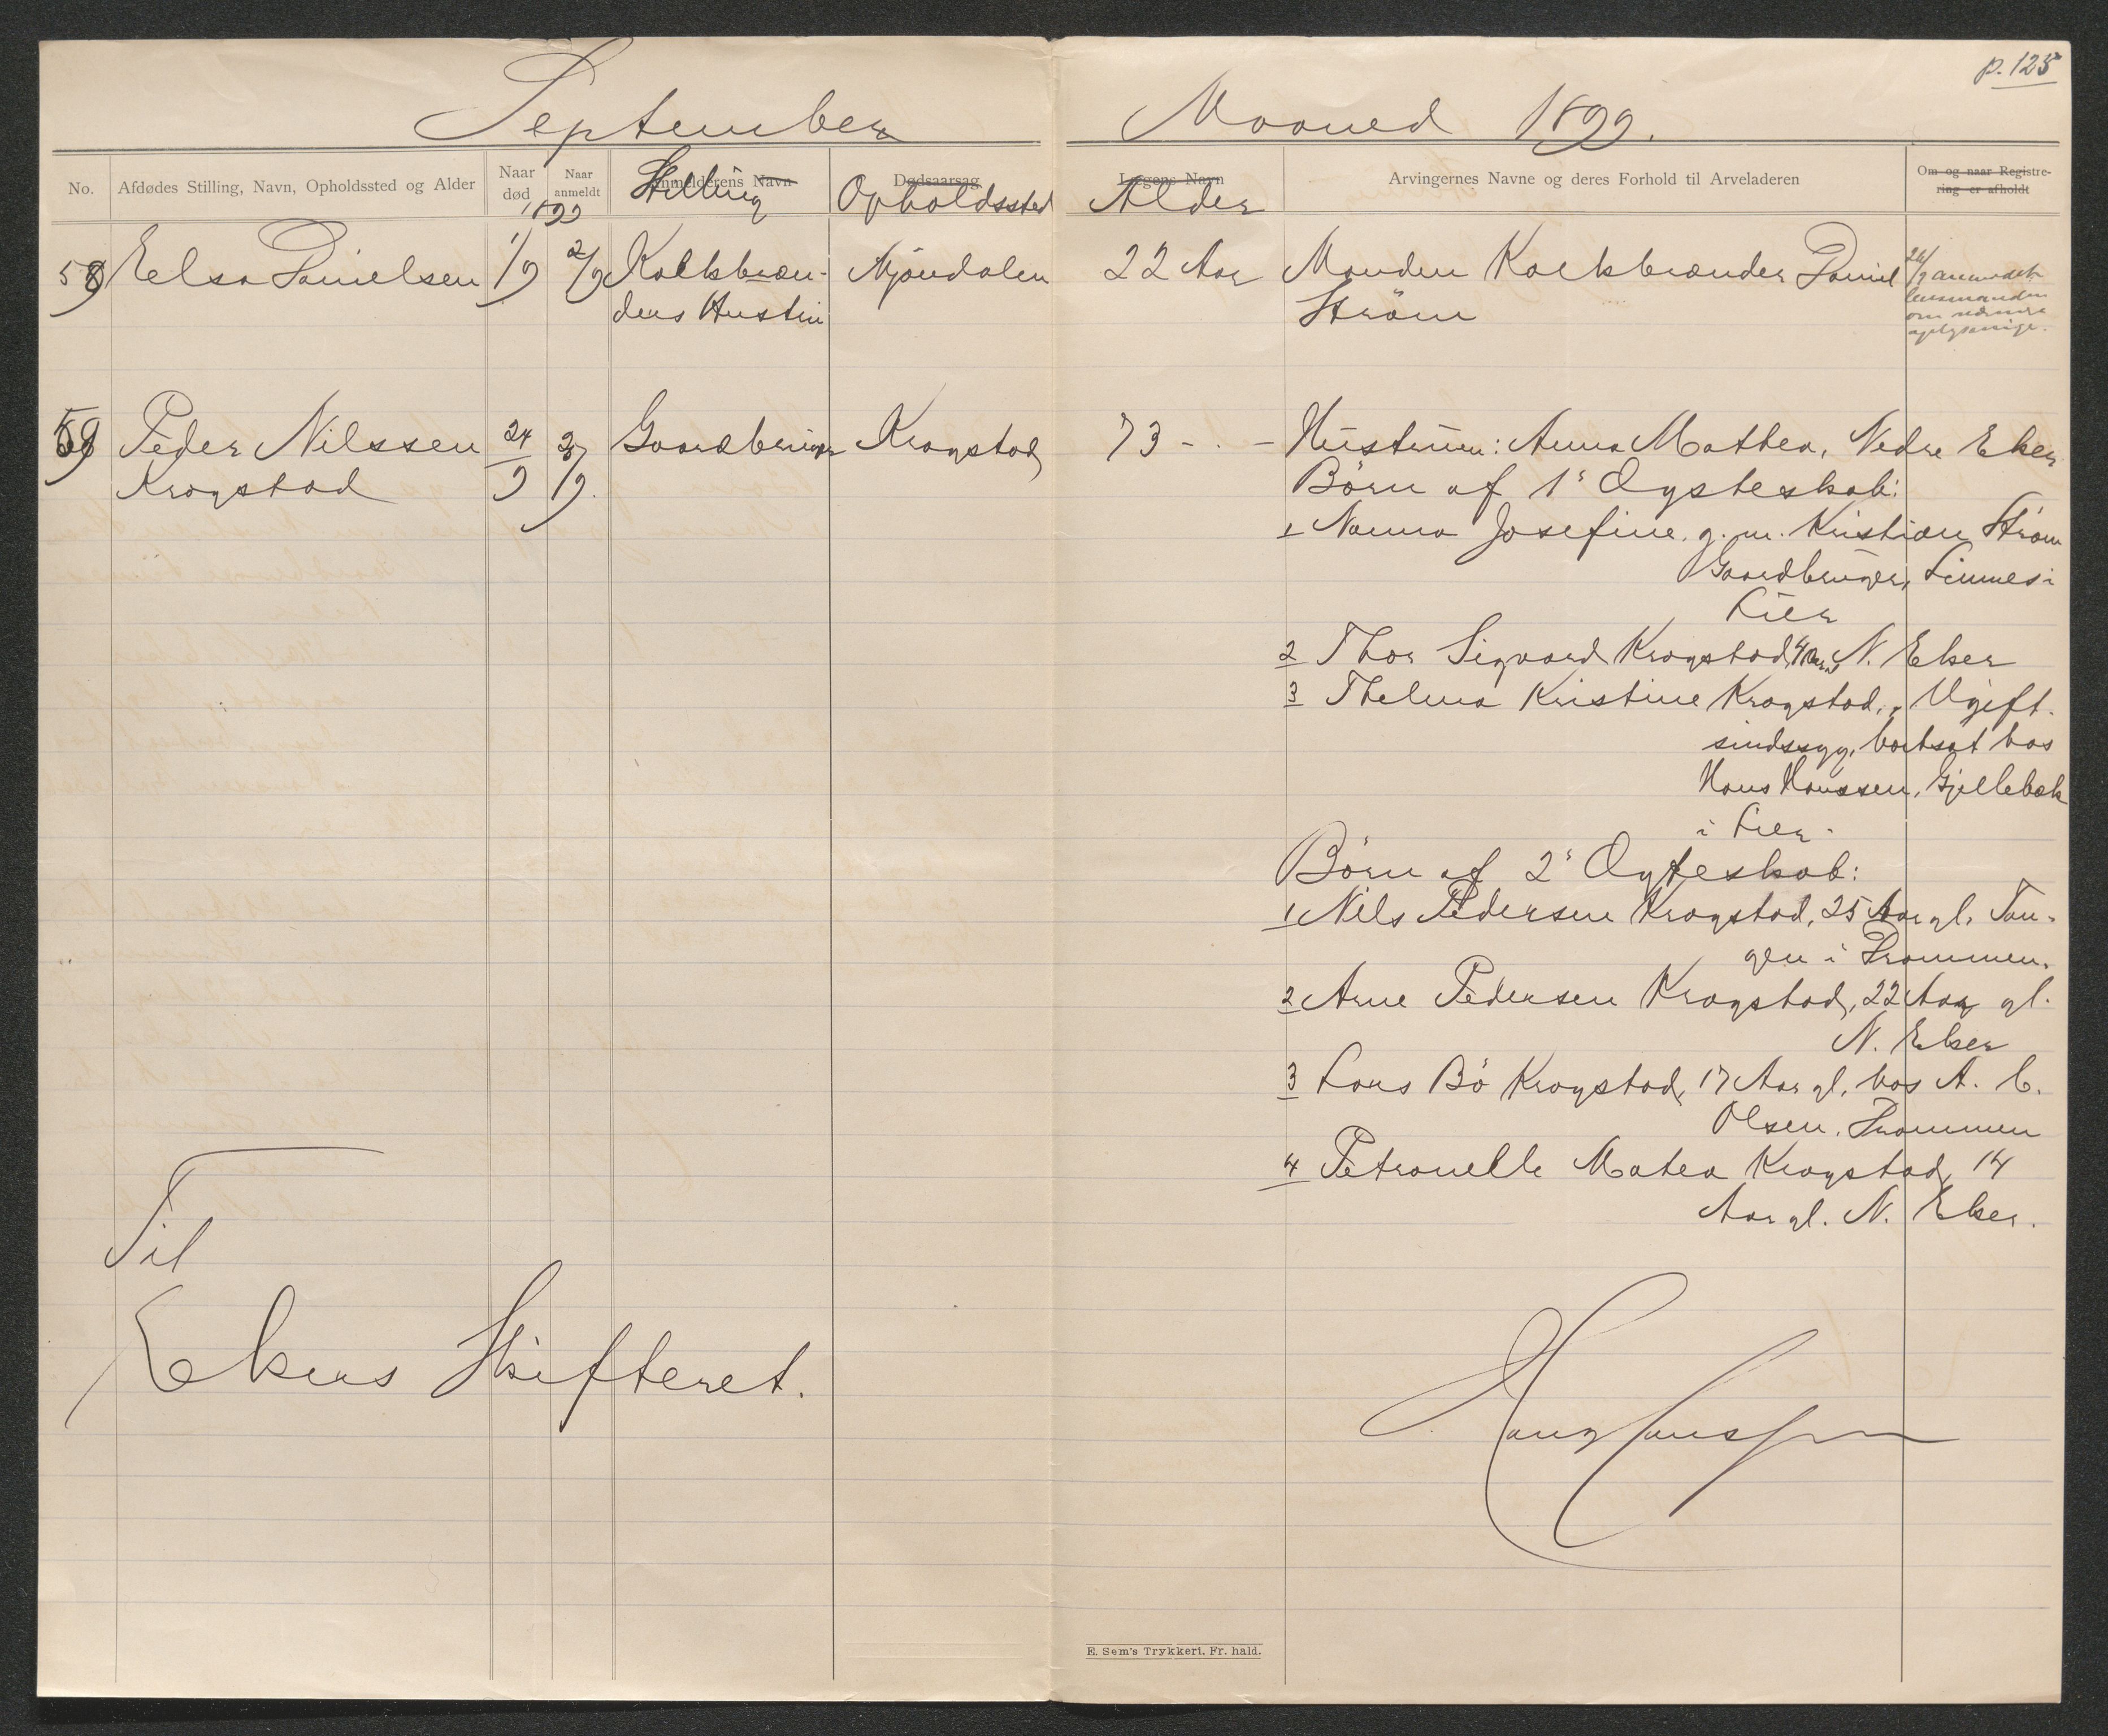 p. 125
September Maaned 1899.
No. Afdødes Stilling, Navn, Opholdssted og Alder Naar død Naar anmeldt Anmelderens Navn Dødsaarsag Lægens Navn Arvingernes Navne og deres Forhold til Arveladeren Om og naar Registrering er afholdt
1899 Stilling Opholdssted Alder
58 Elsa Danielsen 1/9 2/9 Kalkbræn- Mjøndalen 22 Aar Manden Kalkbrænder Daniel
ders Hustru Strøm
26/9 anmodet
lensmanden
om nærmere
oplysninge.
59 Peder Nilssen 24/9 /9. Gaardbruger Krogstad 73 - " - Hustrun: Anna Mathea, Nedre Eker
Krogstad Børn af 1s Ægsteskab:
1 Nanna Josefine. g. m. Kristian Strøm
Gaardbruger, Linnes i
Lier
2 Thor Sigvard Krogstad, N. Eker
3 Thelma Kristine Krogstad, Ugift.
sindssyg, bortsat hos
Hans Hanssen, Gjellebæk
i Lier.
Børn af 2s Ægteskab:
1 Nils Pedersen Krogstad, 25 Aar gl. Tan-
gen i Drammen.
2 Arne Pedersen Krogstad, 22 Aar gl.
N. Eker
3 Lars Bö Krogstad, 17 Aar gl, hos A. C.
Olsen. Drammen
4 Petronelle Matea Krogstad, 14
Aar gl. N. Eker.
Til
Ekers Skifteret.
Hans Hanssen
E. Sem's Trykkeri, Fr. hald.